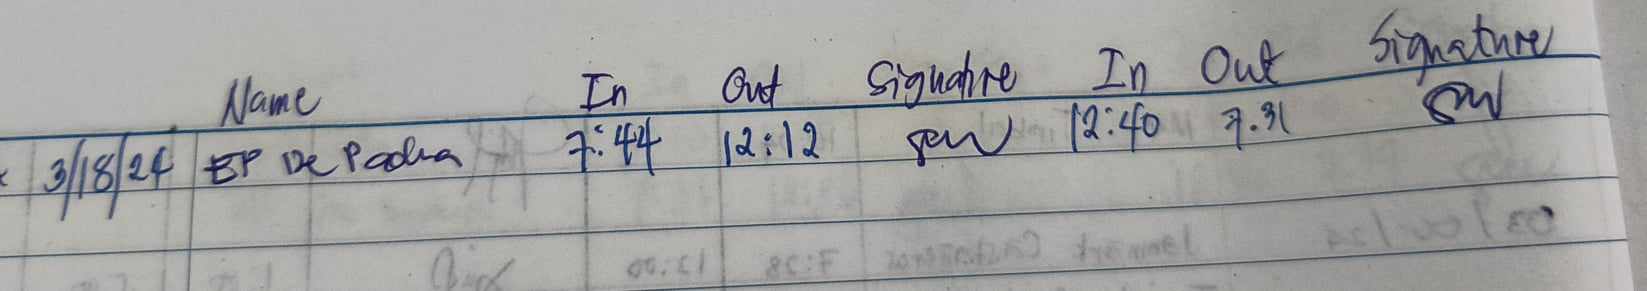 Name In Out Signature In Out Signature
3/18/24 EP De Padua 7:44 12:12 12:40 7.31